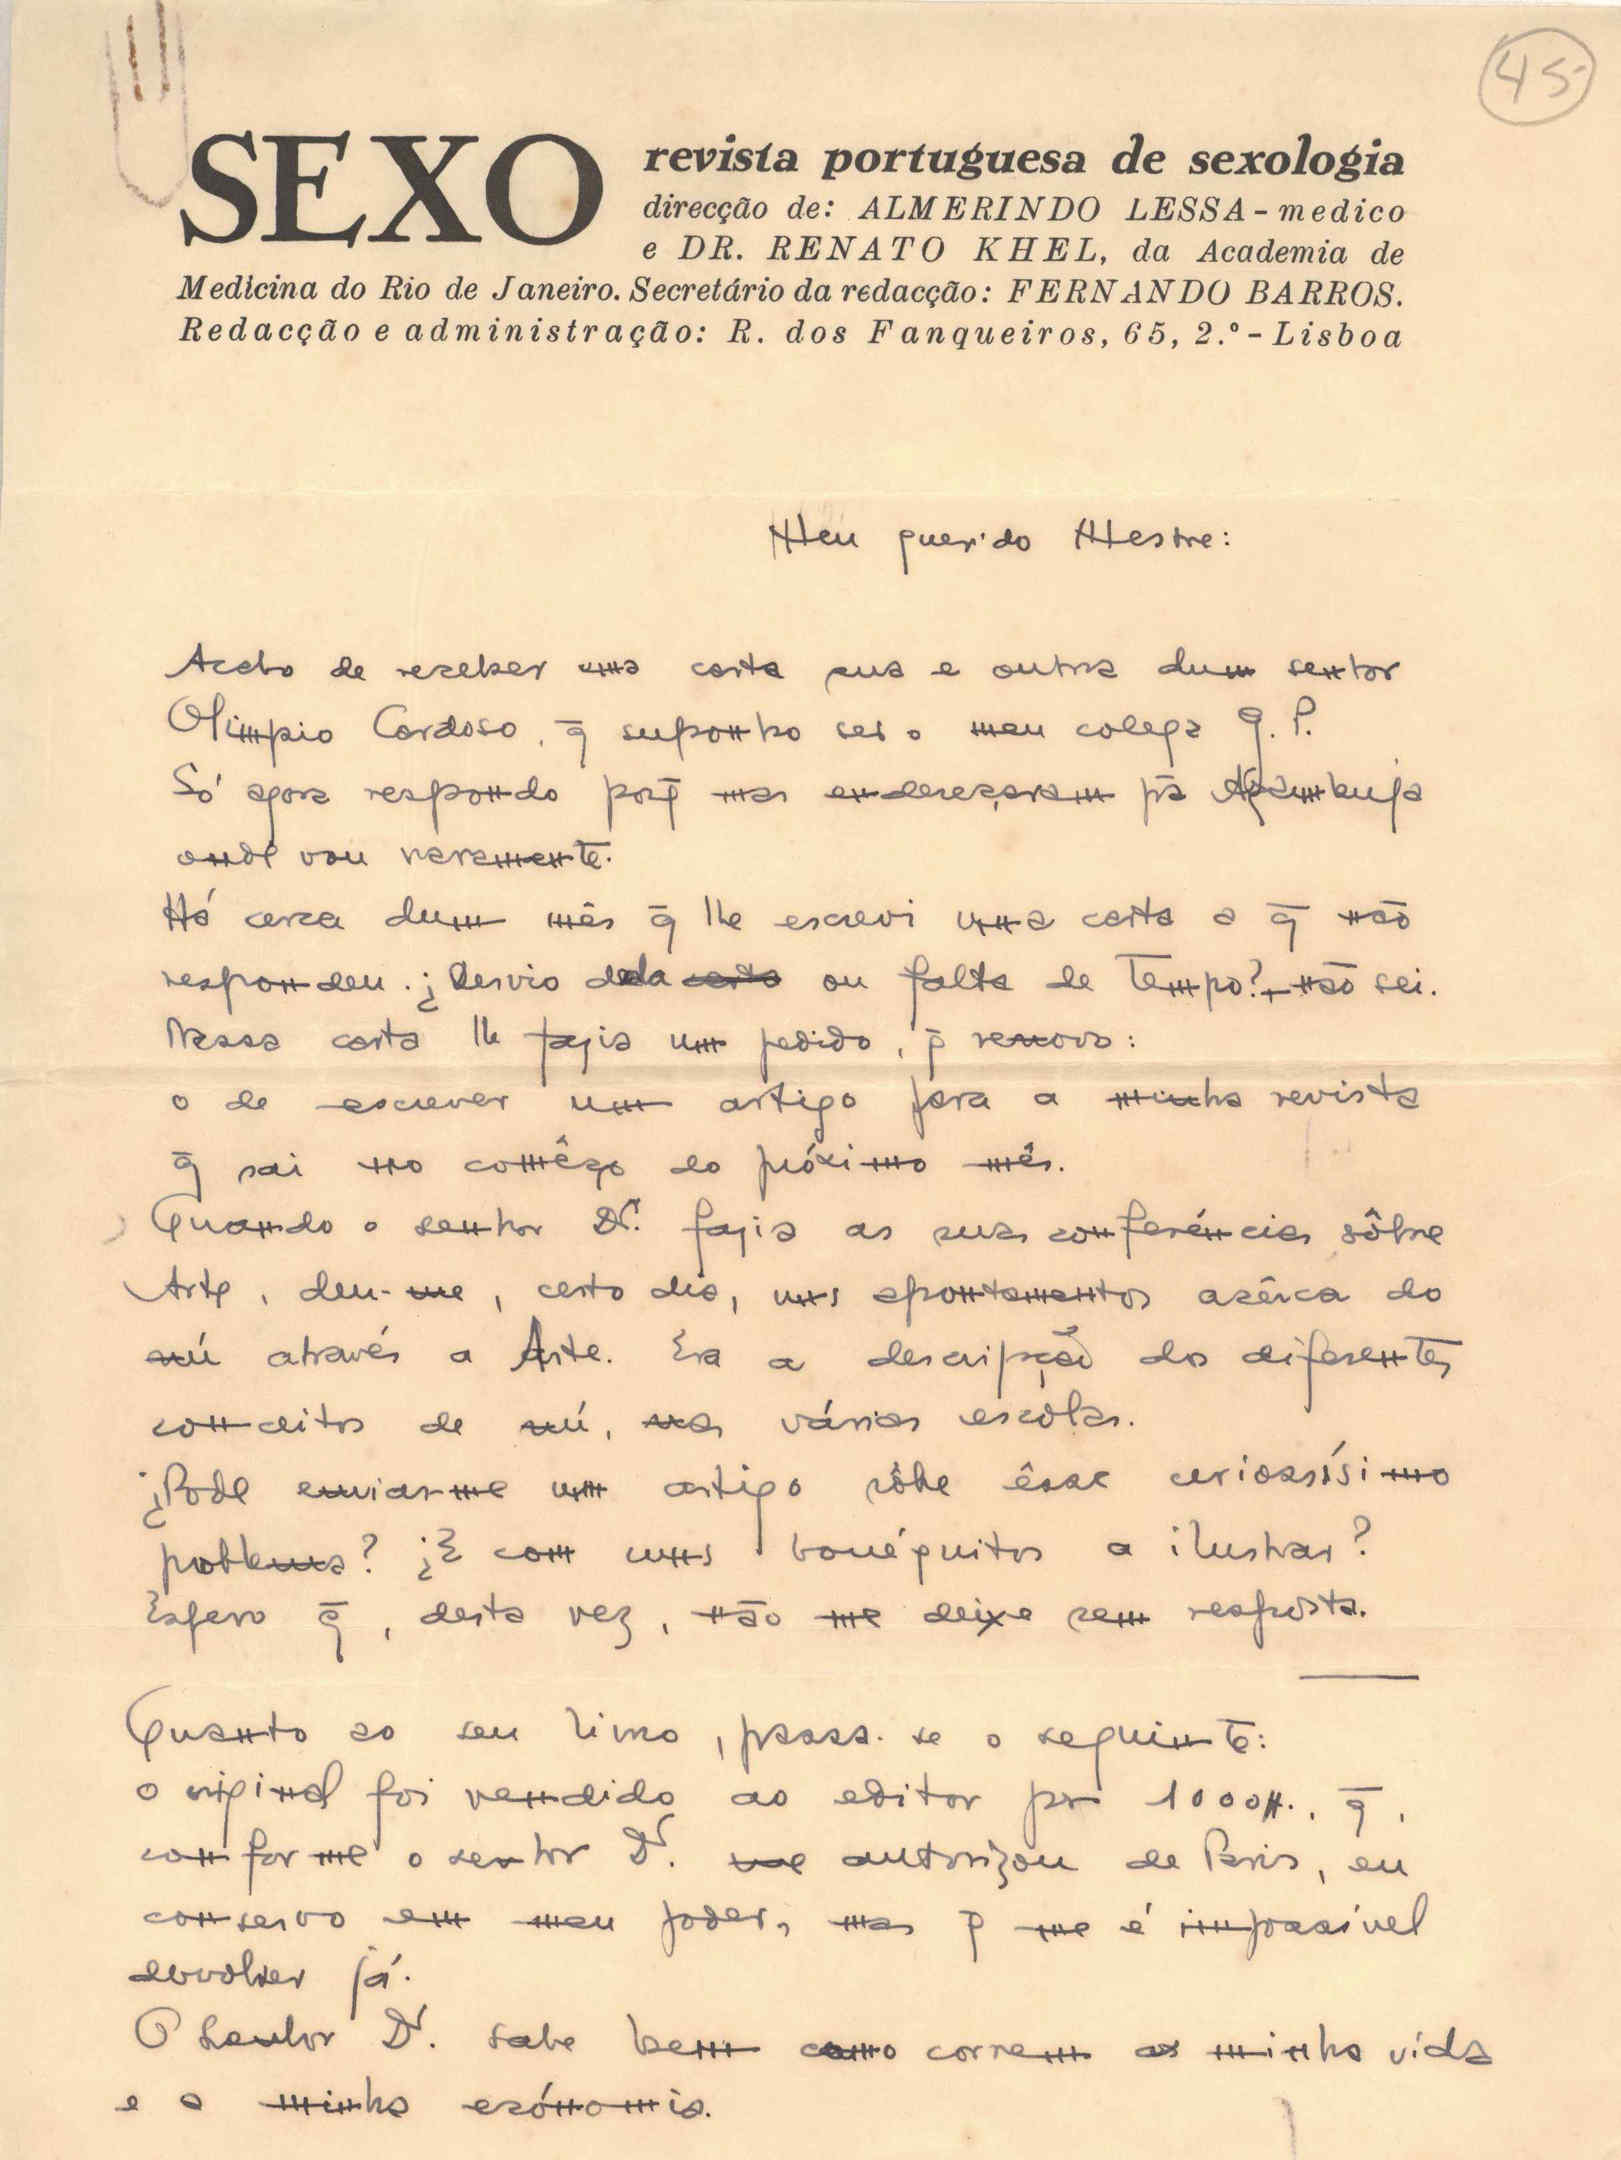 45
SEXO revista portuguesa de sexologia
direcção de: ALMERINDO LESSA - medico
e DR. RENATO KHEL, da Academia de
Medicina do Rio de Janeiro. Secretário da redacção: FERNANDO BARROS.
Redacção e administração: R. dos Fanqueiros, 65, 2.º - Lisboa
Meu querido Mestre:
Acabo de receber uma carta sua e outra dum senhor
Olimpio Cardoso, q̄ suponho ser o meu colega G. P.
Só agora respondo porq̄ mas endereçaram p̄a Azambuja
onde vou raramente.
Há cerca dum mês q̄ lhe escrevi uma carta a q̄ não
respondeu. ¿Desvio dela carta ou falta de tempo? - não sei.
Nessa carta lhe fazia um pedido, q̄ renovo:
o de escrever um artigo para a minha revista
q̄ sai no comêço do próximo mês.
Quando o senhor Dr. fazia as suas conferências sôbre
Arte, deu-me, certo dia, uns apontamentos acêrca do
nú através a Arte. Era a descripção dos diferentes
conceitos de nú, nas várias escolas.
¿Pode enviar-me um artigo sôbre êsse curiosíssimo
problema? ¿E com uns bonéquitos a ilustrar?
Espero q̄, desta vez, não me deixe sem resposta.
Quanto ao seu livro, passa-se o seguinte:
o original foi vendido ao editor por 1000$., q̄,
conforme o senhor Dr. me autorizou de Paris, eu
conservo em meu poder, mas q̄ me é impossível
devolver já.
O senhor Dr. sabe bem como correm as minha vida
e a minha ecónomia.